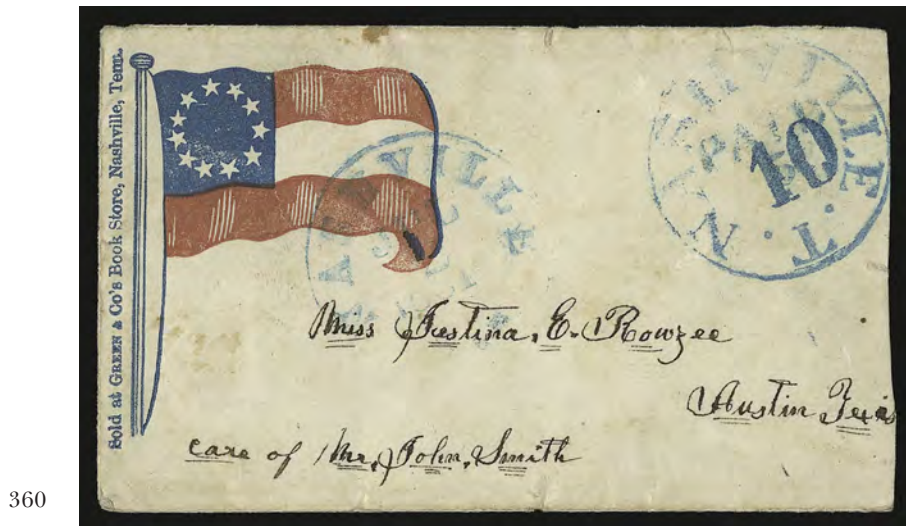 Sold at GREEN & Co's Book Store, Nashville, Tenn.
NASHVILLE T.
PAID
10
Miss Justina. E. Rowzee
Austin Texas
care of Mr. John. Smith
360